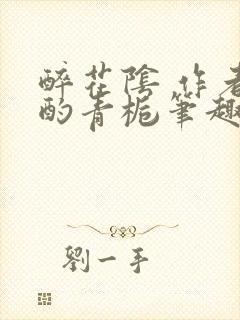 醉花陰 作者
酌青梔筆趣
劉一手